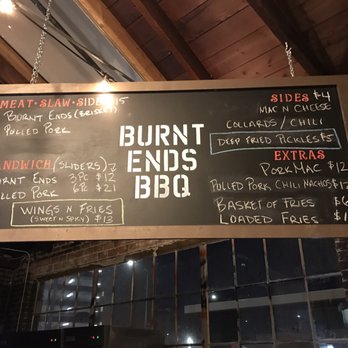 MEAT · SLAW · SIDE 15
BURNT ENDS (BRISKET)
PULLED PORK
SANDWICH (SLIDERS)
BURNT ENDS 3PC $12
PULLED PORK 6PC $21
WINGS N FRIES
(SWEET N SPICY) $13
BURNT
ENDS
BBQ
SIDES $4
MAC N CHEESE
COLLARDS / CHILI
DEEP FRIED PICKLES $5
EXTRAS
PORK MAC $12
PULLED PORK CHILI NACHOS $12
BASKET OF FRIES $6
LOADED FRIES